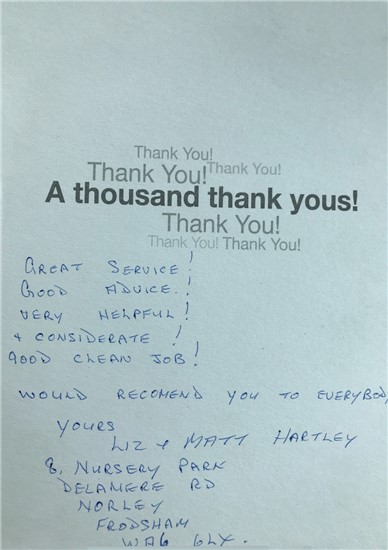 Thank You!
Thank You! Thank You!
A thousand thank yous!
Thank You!
Thank You! Thank You!
GREAT SERVICE!
GOOD ADVICE.!
VERY HELPFUL!
+ CONSIDERATE!
GOOD CLEAN JOB!
WOULD RECOMEND YOU TO EVERYBODY,
YOURS
LIZ + MATT HARTLEY
8, NURSERY PARK
DELAMERE RD
NORLEY
FRODSHAM
WA6 6LX.